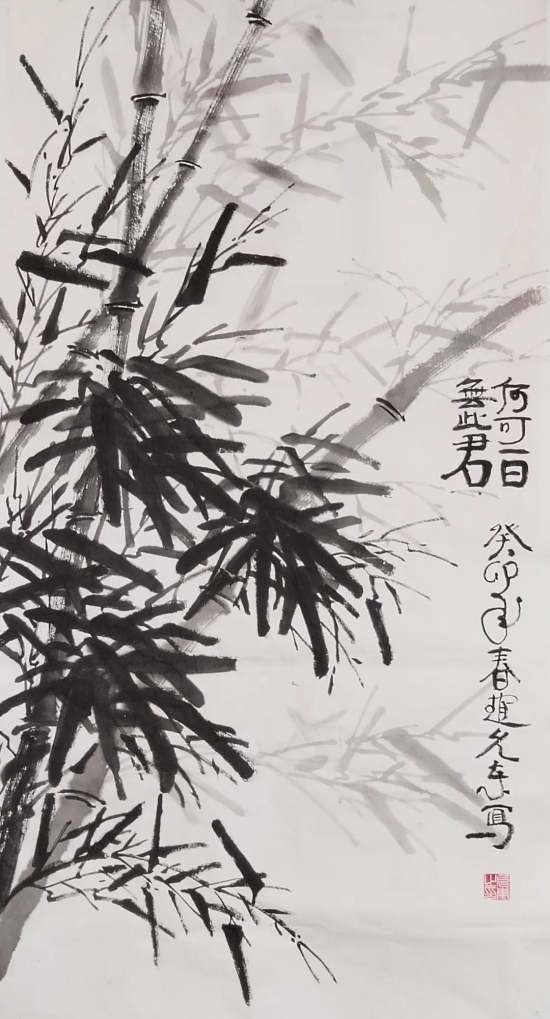 何可一日
無此君
癸卯年春趙允东寫